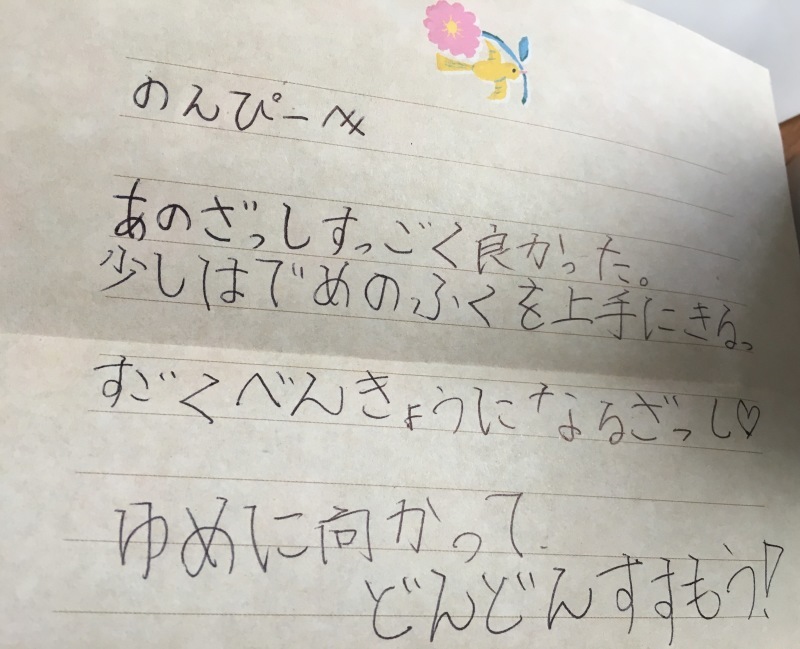 のんぴーへ
あのざっしすっごく良かった。
少しはでめのふくを上手にきるっ
すごくべんきょうになるざっし♡
ゆめに向かって
どんどんすすもう!